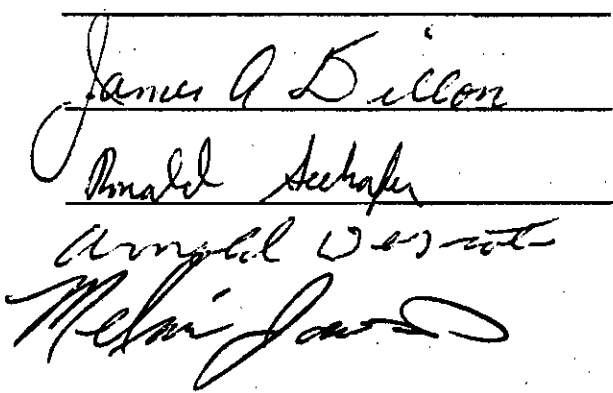 James A Dillon
Ronald Seehafer
Arnold
Melvin